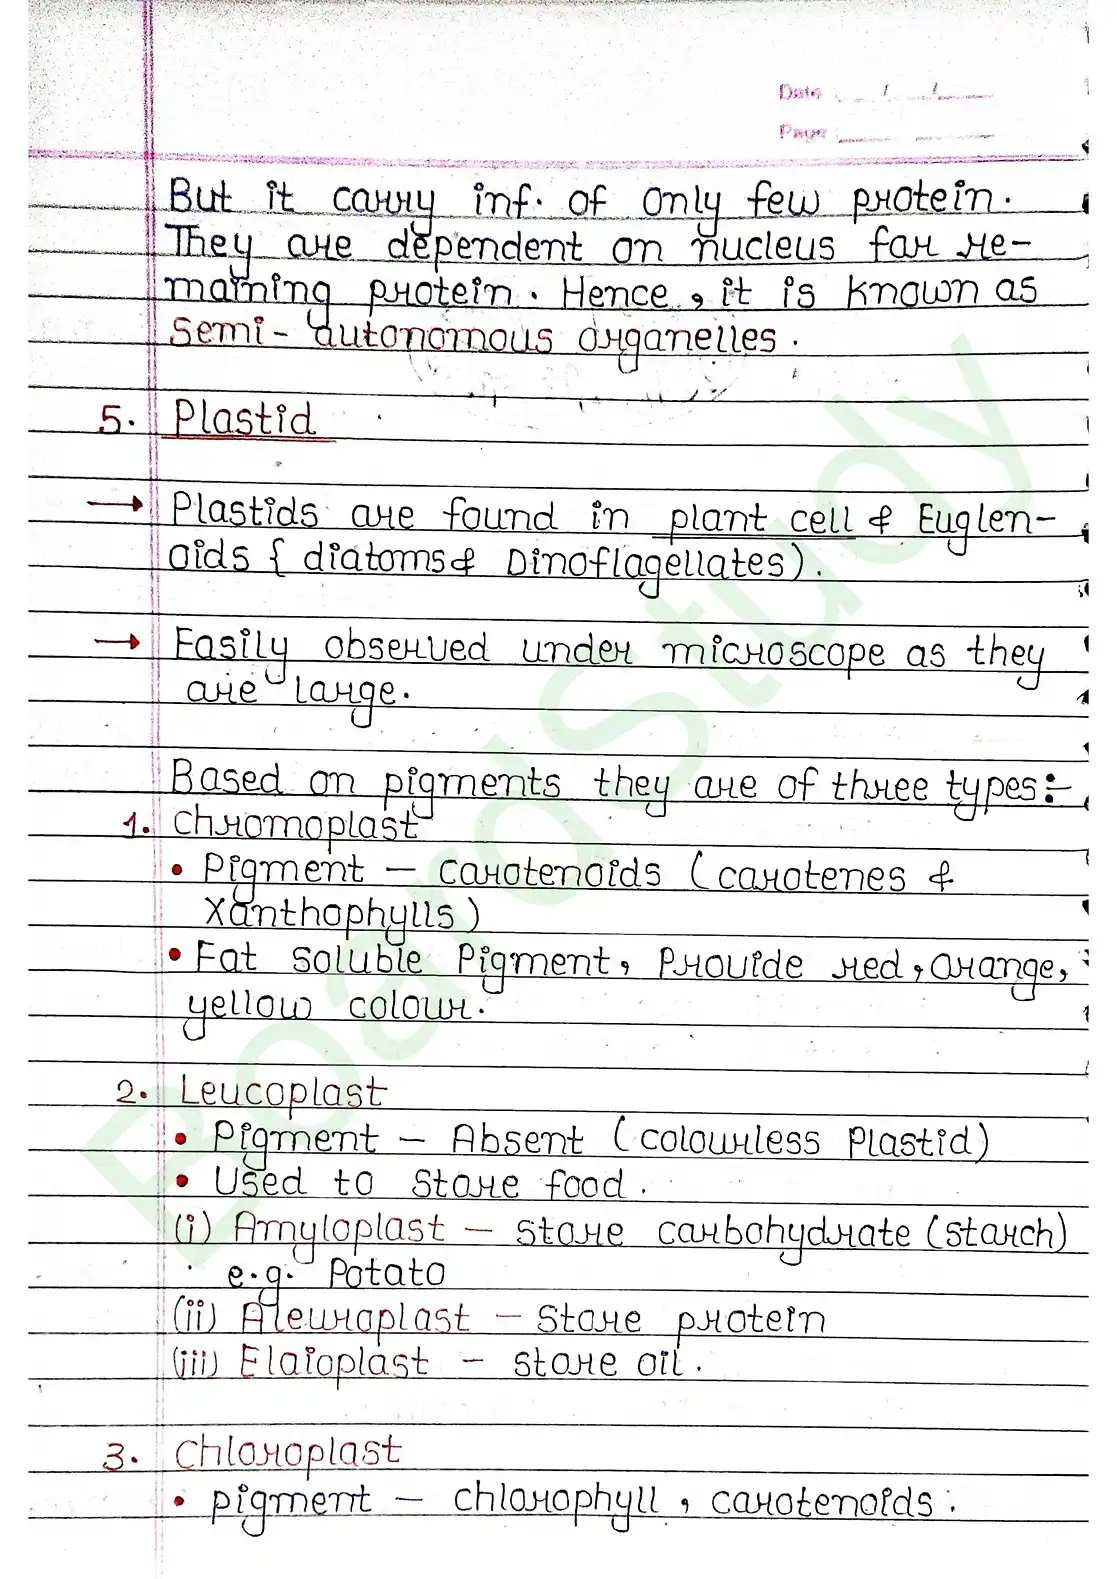 Date __/__/__
Page ____ ____
But it carry inf. of only few protein.
They are dependent on nucleus for re-
maining protein. Hence, it is known as
semi-autonomous organelles.
5. Plastid
→ Plastids are found in plant cell & Euglen-
oids { diatoms & Dinoflagellates).
→ Easily observed under microscope as they
are large.
Based on pigments they are of three types:-
1. Chromoplast
• Pigment – carotenoids (carotenes &
Xanthophylls)
• Fat soluble Pigment, Provide red, orange,
yellow colour.
2. Leucoplast
• Pigment – Absent (colourless Plastid)
• Used to store food.
(i) Amyloplast – store carbohydrate (starch)
e.g. Potato
(ii) Aleuroplast – store protein
(iii) Elaioplast – store oil.
3. Chloroplast
• pigment – chlorophyll, carotenoids.
BoardStudy